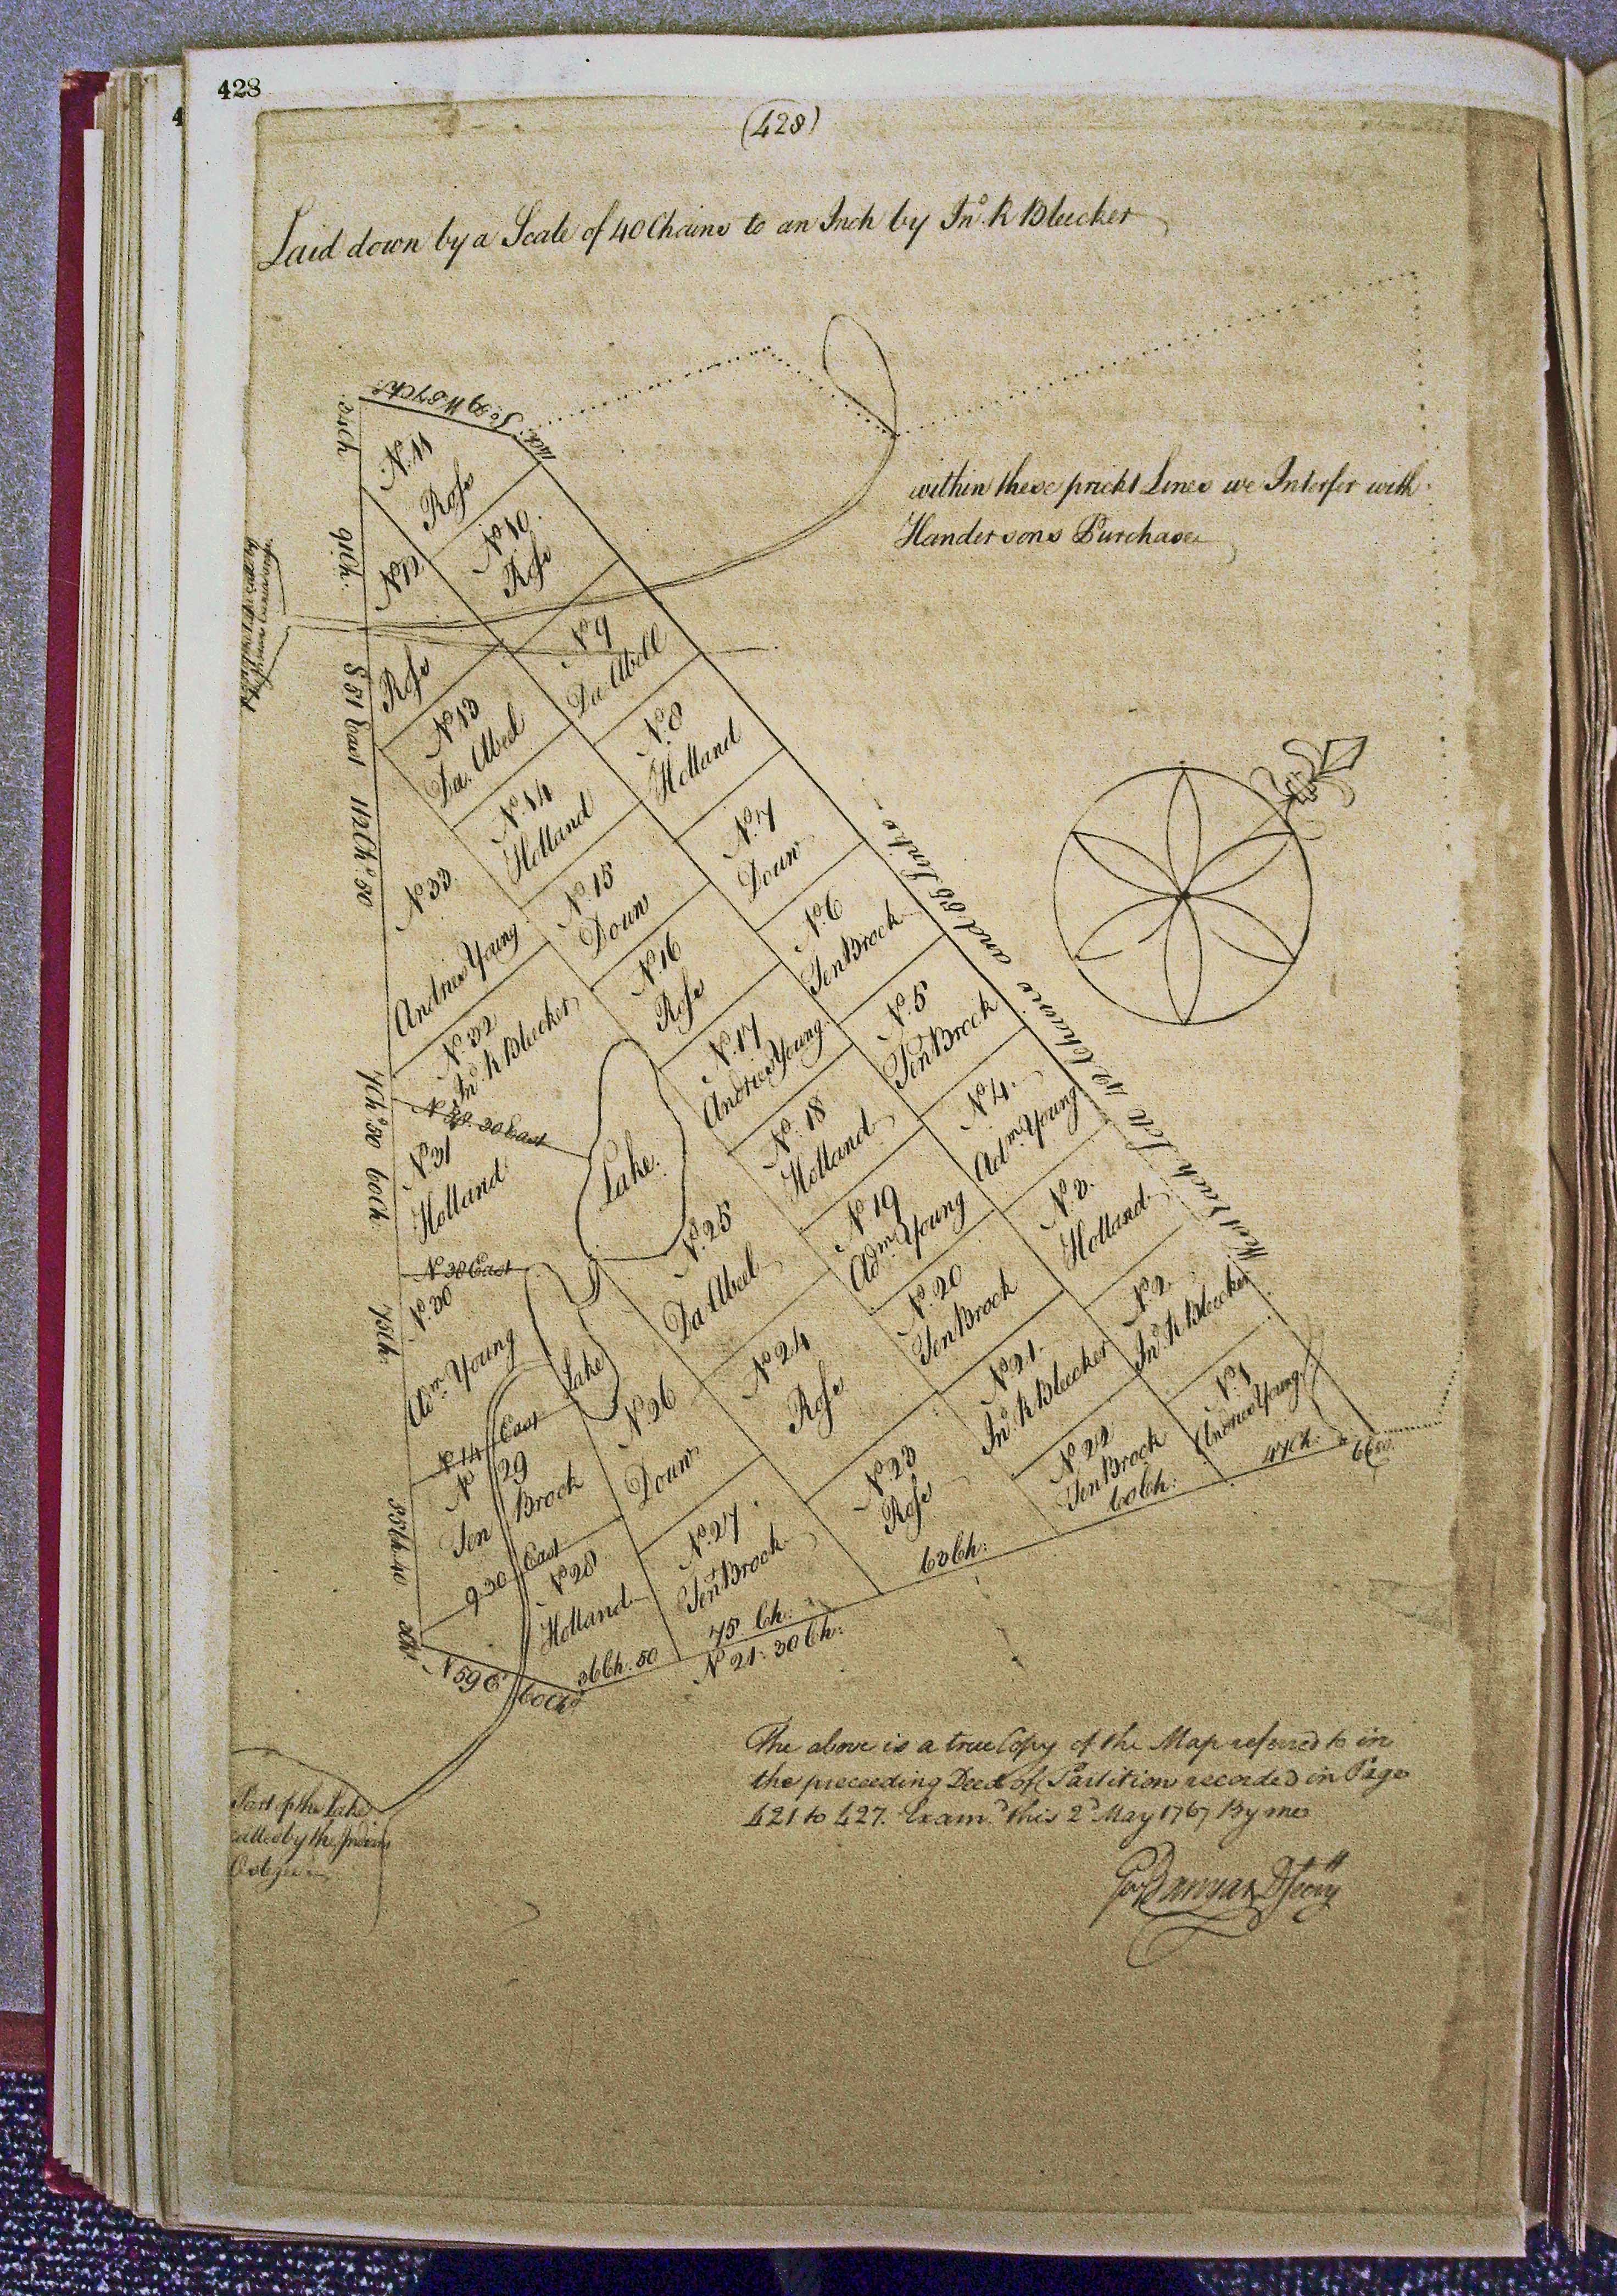 428
4
(428)
Laid down by a Scale of 40 Chains to an Inch by Jn.º R Bleecker
So 59 W 57 Ch.
N.º 11
Rose
N.º 10.
Rose
N.º 12
Rose
91 Ch.
S 51 East 112 Ch.s 50
within these prickt Lines we Interfer with
Handersons Purchase
N.º 9
Da Abell
N.º 13
Da. Abeel
N.º 8
Holland
N.º 14
Holland
N.º 7
Douw
N.º 33
Andrew Young
N.º 15
Douw
N.º 6
Ten Brock
N.º 32
Jn.º R Bleecker
N.º 16
Rose
N.º 5
Ten Brock
N.º 17
Andrew Young
N.º 4.
Adm Young
N.º 18
Holland
N.º 3.
Holland
N.º 19
Adm Young
N.º 2
Jn.º R Bleecker
N.º 20
Ten Brock
N.º 1
Andrew Young
N.º 21.
Jn.º R Bleecker
N.º 22
Ten Brock
N.º 23
Rose
N.º 24
Rose
N.º 25
Da Abeel
N.º 26
Douw
N.º 27
Ten Brock
N.º 28
Holland
N.º 29
Ten Brock
N.º 30
Adm Young
N.º 31
Holland
Lake.
Lake
N 38. 30 East
N 30 East
N 14 East
9 30 East
7 Ch.s 50 60 Ch.
75 Ch.
Each Lott 42 Chains and 55 Links
47 Ch.
60 Ch.
60 Ch:
75 Ch.
N 21: 30 Ch:
36 Ch. 50
N 59 E
60 Ch.s
Part of the Lake
called by the Indians
The above is a true Copy of the Map referred to in
the preceeding Deed of Partition recorded in Page
421 to 427. Exam.d this 2.d May 1767 By me
Banyar D Secry